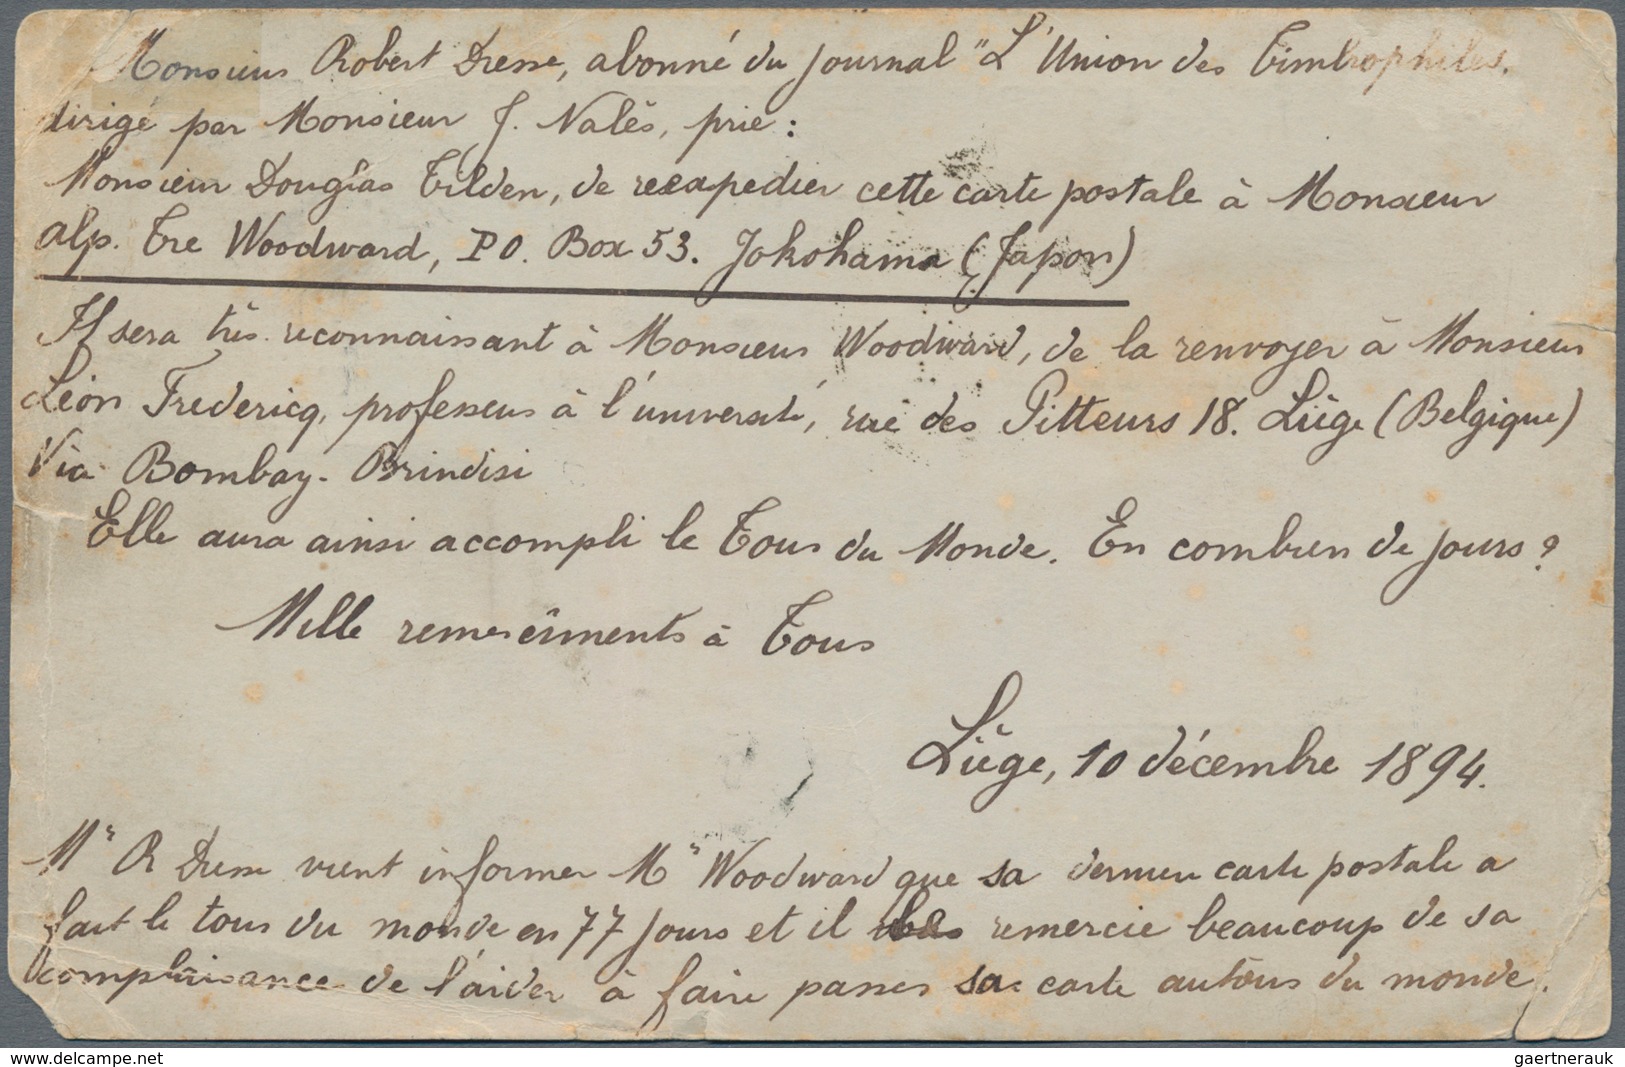 Monsieur Robert Dresse, abonné du journal "L'Union des Timbrophiles.
dirigé par Monsieur J. Nalès, prie :
Monsieur Douglas Tilden, de reexapedier cette carte postale à Monsieur
Alp. Tre Woodward, PO. Box 53. Jokohama (Japon)
Il sera très reconnaissant à Monsieur Woodward, de la renvoyer à Monsieur
Léon Fredericq, professeur à l'université, rue des Pitteurs 18. Liège (Belgique)
Via Bombay - Brindisi
Elle aura ainsi accompli le Tour du Monde. En combien de jours ?
Mille remerciments à Tous
Liège, 10 décembre 1894.
Mr R Dresse vient informer Mr Woodward que sa dernier carte postale a
fait le tour du monde en 77 jours et il remercie beaucoup de sa
complaisance de l'aider à faire passer sa carte autour du monde.
www.delcampe.net
gaertnerauk